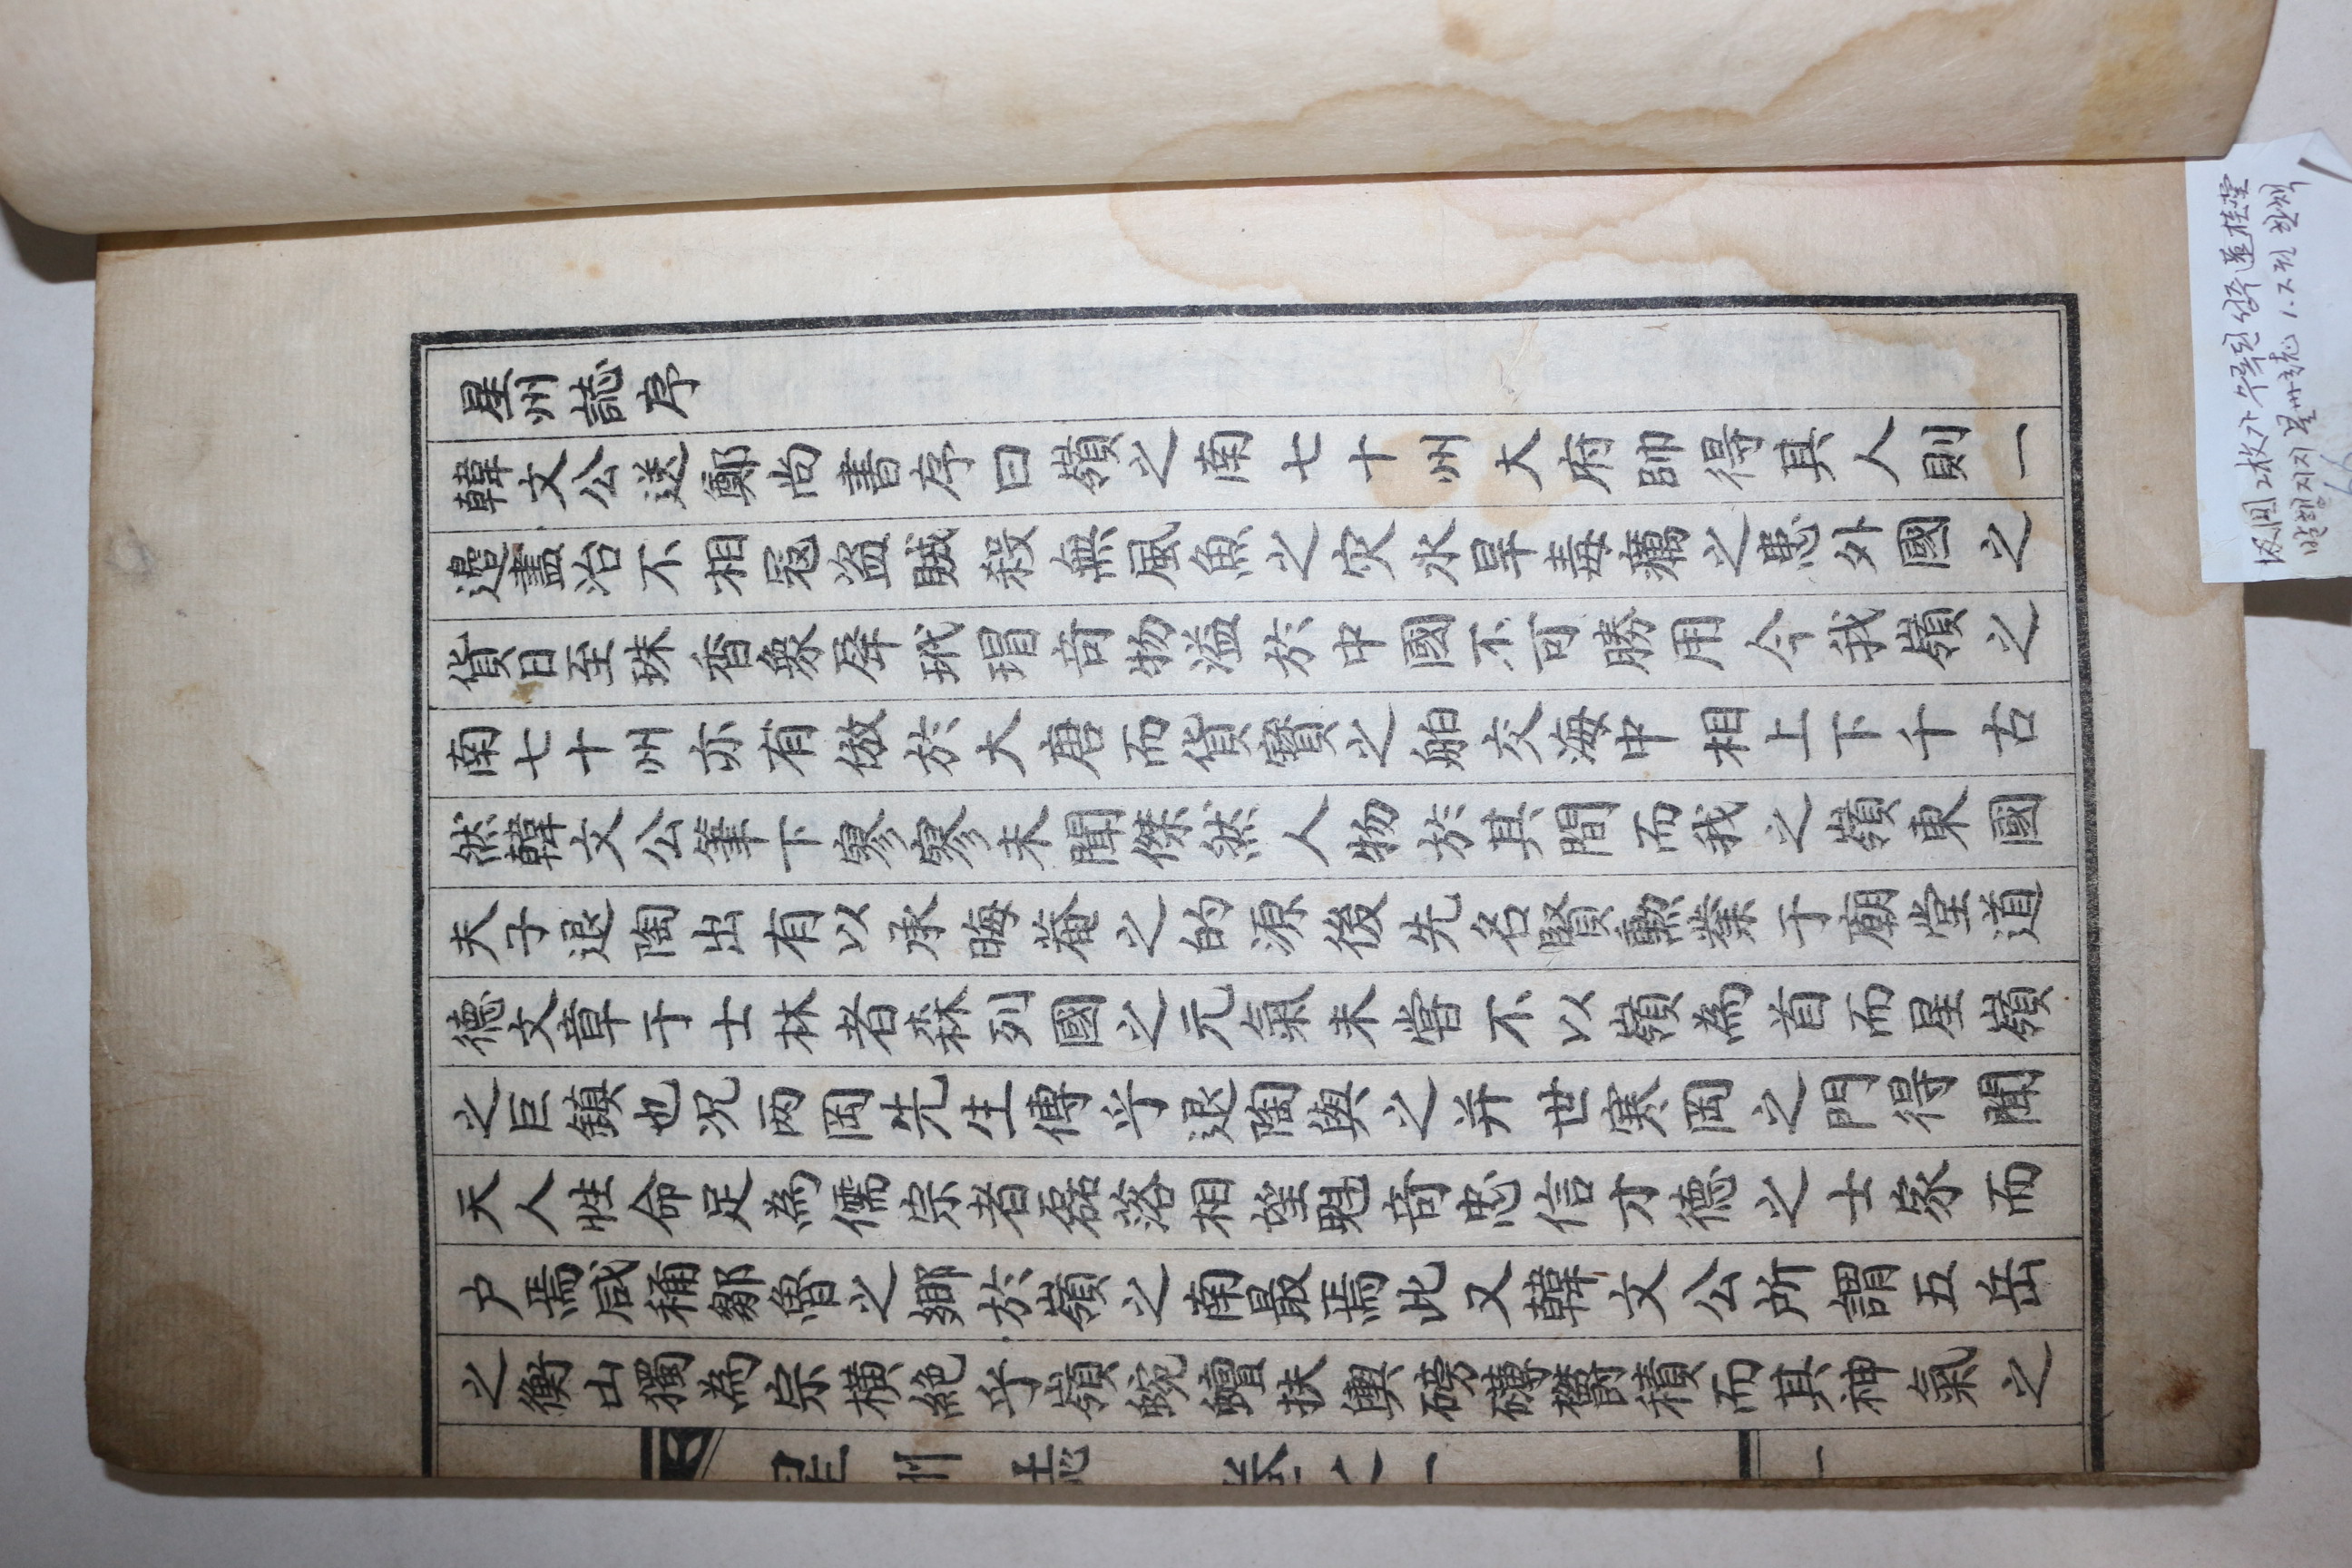 星州誌序
韓文公送鄭尚書序曰嶺之南七十州大府帥得其人則一
邊盡治不相冦盜賊殺無風魚之灾水旱毒癘之患外國之
貨日至珠香象犀玳瑁竒物溢於中國不可勝用今我嶺之
南七十州亦有倣於大唐而貨寶之舶交海中相上下千古
然韓文公筆下寥寥未聞傑然人物於其間而我之嶺東國
夫子退陶出有以承晦菴之的源後先名賢勲業于廟堂道
德文章于士林者森列國之元氣未嘗不以嶺為首而星嶺
之巨鎮也况兩岡先生傳乎退陶與之并世寒岡之門得聞
天人性命足為儒宗者磊落相望魁竒忠信才德之士家而
户焉咸稱鄒魯之鄉於嶺之南最焉比又韓文公所謂五岳
之衡山獨為宗横絶乎嶺蜿蟺扶輿磅礴欝積而其神氣之
星州誌 卷之一 一
板圖2枚가 수록된 상주 道桂堂
발행지지 불반志 1.2권 완책